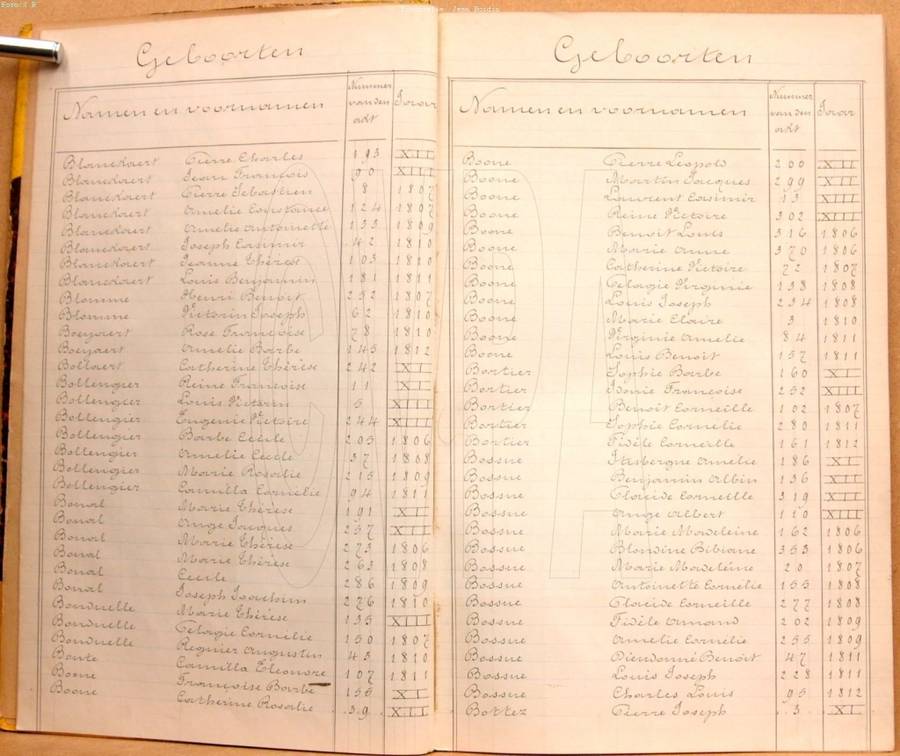 Geboorten
Namen en voornamen Nummer van den akt Jaar
Blanckaert Pierre Charles 193 XII
Blanckaert Jean François 90 XIII
Blanckaert Pierre Sebastien 8 1807
Blanckaert Amelie Constance 124 1807
Blanckaert Amelie Antoinette 133 1809
Blanckaert Joseph Casimir 42 1810
Blanckaert Jeanne Thérèse 103 1810
Blanckaert Louis Benjamin 181 1811
Blomme Henri Benoit 252 1807
Blomme Victorin Joseph 62 1810
Boeyaert Rose Françoise 78 1810
Boeyaert Amelie Barbe 145 1812
Bollaert Catherine Thérèse 242 XI
Bollengier Reine Françoise 11 XI
Bollengier Louis Victorin 5 XIII
Bollengier Eugenie Victoire 244 XIII
Bollengier Barbe Cecile 205 1806
Bollengier Amelie Cecile 37 1808
Bollengier Marie Rosalie 215 1809
Bollengier Camilla Cornelie 94 1811
Bonal Marie Thérèse 191 XI
Bonal Ange Jacques 257 XII
Bonal Marie Thérèse 273 1806
Bonal Marie Thérèse 263 1808
Bonal Cecile 286 1809
Bonal Joseph Joachim 276 1810
Bonduelle Marie Thérèse 135 XIII
Bonduelle Pélagie Cornélie 150 1807
Bonduelle Regnier Augustin 43 1810
Bonte Camilla Eleonore 107 1811
Boone Françoise Barbe 155 XI
Boone Catherine Rosalie 39 XII
Geboorten
Namen en voornamen Nummer van den akt Jaar
Boone Pierre Léopold 200 XII
Boone Martin Jacques 299 XII
Boone Laurent Casimir 13 XIII
Boone Reine Victoire 302 XIII
Boone Benoit Louis 316 1806
Boone Marie Anne 370 1806
Boone Catherine Victoire 72 1807
Boone Pélagie Virginie 138 1808
Boone Louis Joseph 234 1808
Boone Marie Claire 3 1810
Boone Virginie Amelie 84 1811
Boone Louis Benoit 157 1811
Bortier Sophie Barbe 160 XI
Bortier Sonie Françoise 252 XIII
Bortier Benoit Corneille 102 1807
Bortier Sophie Cornelie 280 1811
Bortier Fidèle Corneille 161 1812
Bossue Itisbergue Amelie 186 XI
Bossue Benjamin Albin 136 XII
Bossue Placide Corneille 319 XII
Bossue Ange Albert 110 XIII
Bossue Marie Madeleine 162 1806
Bossue Blondine Bibiane 353 1806
Bossue Marie Madeleine 20 1807
Bossue Antoinette Cornélie 155 1808
Bossue Placide Corneille 277 1808
Bossue Fidèle Amand 202 1809
Bossue Amelie Cornelie 255 1809
Bossue Dieudonné Benoit 47 1811
Bossue Louis Joseph 228 1811
Bossue Charles Louis 95 1812
Bottez Pierre Joseph 3 XI